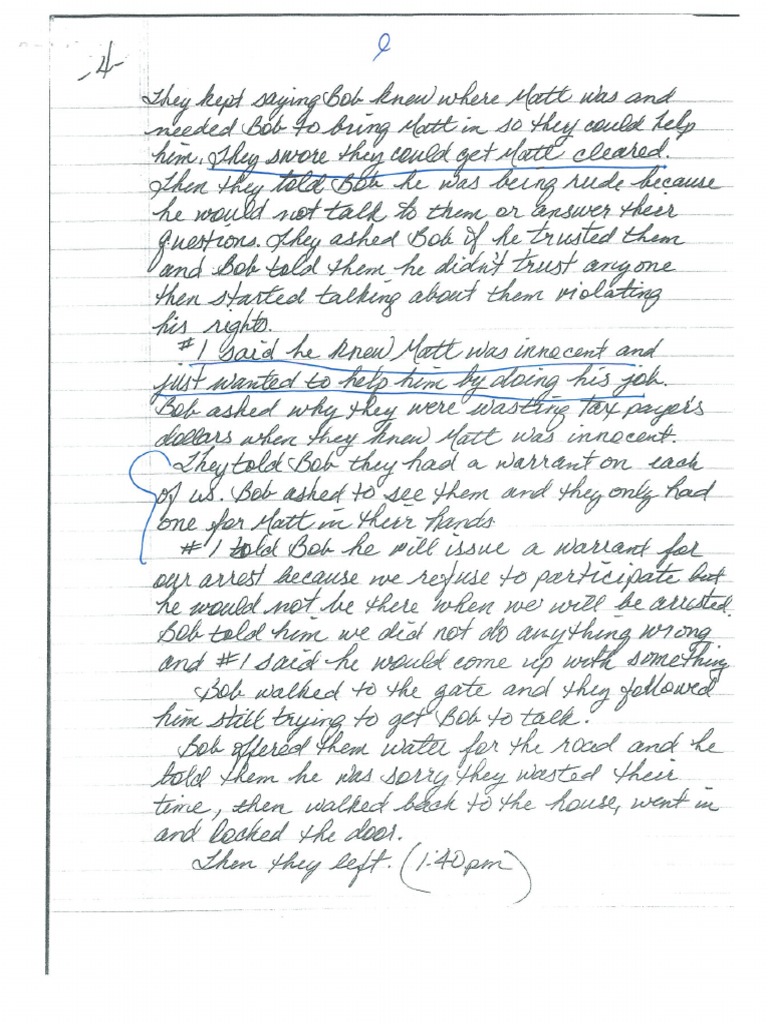 -4-
They kept saying Bob knew where Matt was and
needed Bob to bring Matt in so they could help
him. They swore they could get Matt cleared.
Then they told Bob he was being rude because
he would not talk to them or answer their
questions. They asked Bob if he trusted them
and Bob told them he didn't trust anyone
then started talking about them violating
his rights.
#1 said he knew Matt was innocent and
just wanted to help him by doing his job.
Bob asked why they were wasting tax payer's
dollars when they knew Matt was innocent.
They told Bob they had a warrant on each
of us. Bob asked to see them and they only had
one for Matt in their hands
#1 told Bob he will issue a warrant for
our arrest because we refuse to participate but
he would not be there when we will be arrested.
Bob told him we did not do anything wrong
and #1 said he would come up with something
Bob walked to the gate and they followed
him still trying to get Bob to talk.
Bob offered them water for the road and he
told them he was sorry they wasted their
time, then walked back to the house, went in
and locked the door.
Then they left. (1:40pm)